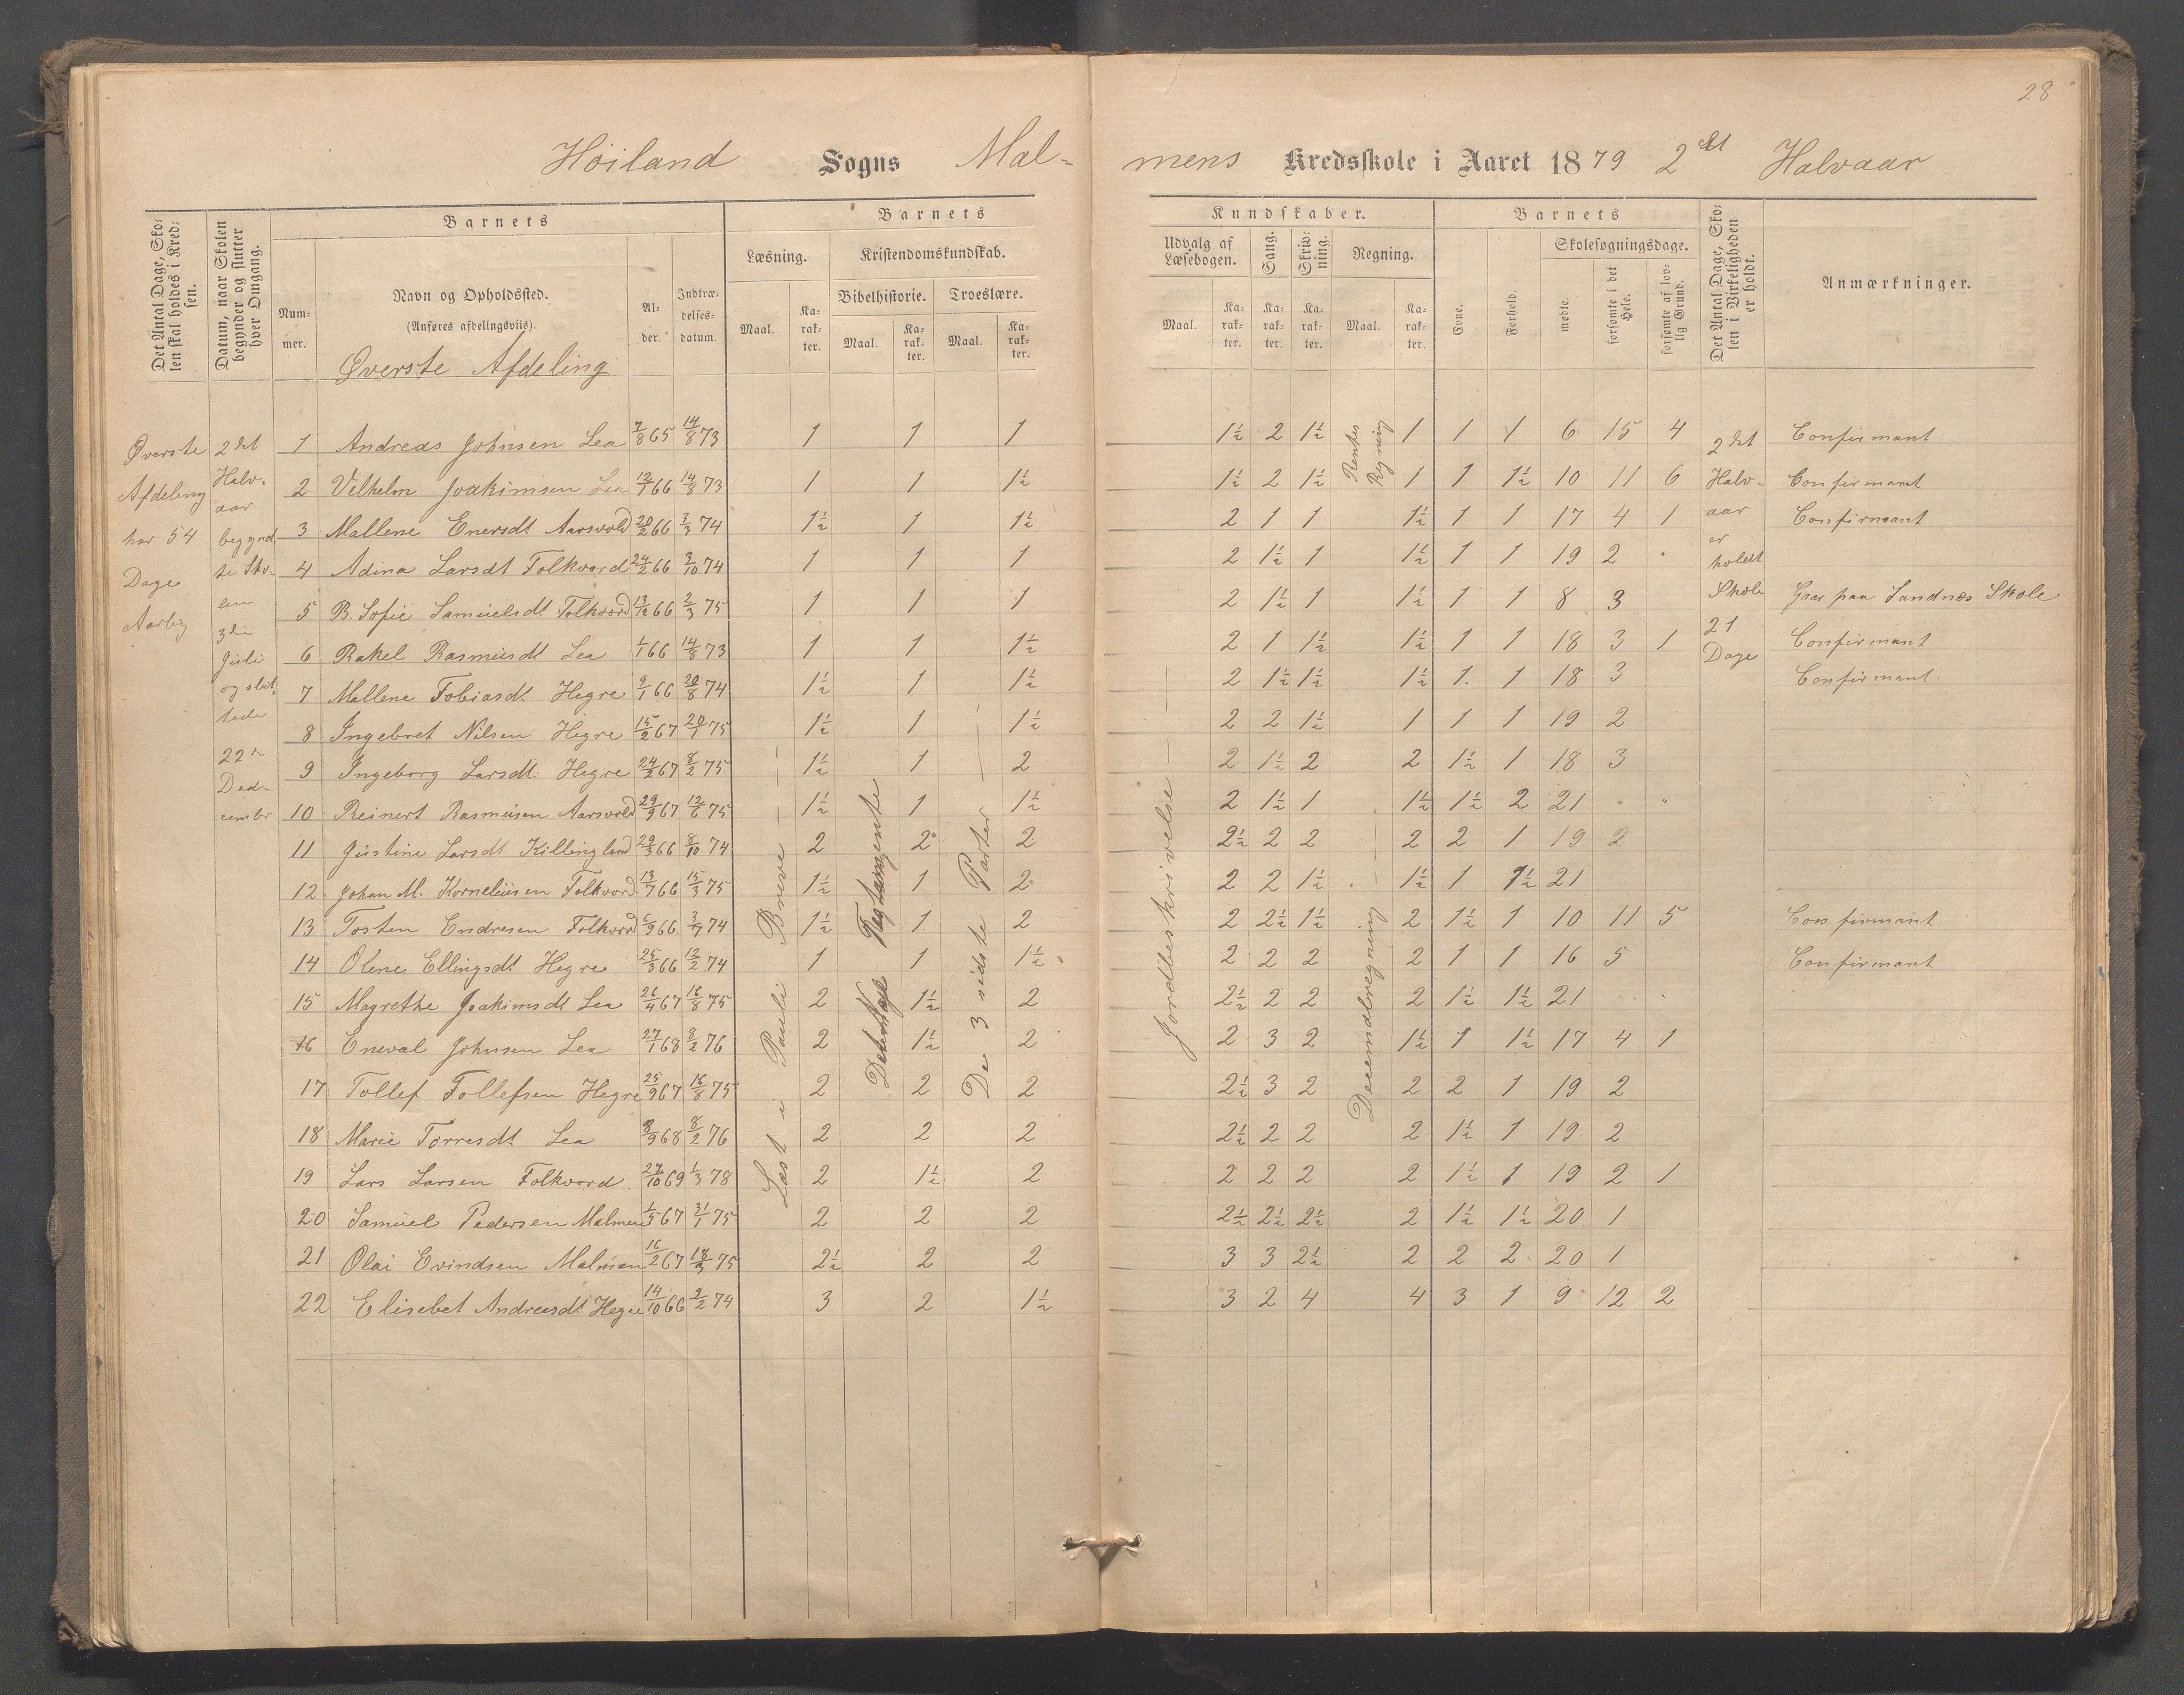 28
Höiland Sogns Mal-mens Kredsskole i Aaret 1879 2det Halvaar
Det Antal Dage, Skolen skal holdes i Kredsen.
Datum, naar Skolen begynder og slutter hver Omgang.
Barnets
Nummer.
Navn og Opholdssted.
(Anføres afdelingsviis).
Øverste Afdeling
Alder.
Indtrædelsesdatum.
Barnets Kundskaber.
Læsning.
Maal. Karakter.
Kristendomskundskab.
Bibelhistorie. Troeslære.
Maal. Karakter. Maal. Karakter.
Udvalg af Læsebogen.
Maal. Karakter.
Sang. Karakter.
Skrivning. Karakter.
Regning.
Maal. Karakter.
Barnets
Evne. Forhold.
Skolesøgningsdage.
mødte. forsømte i det Hele. forsømte af lovlig Grund.
Det Antal Dage, Skolen i Virkeligheden er holdt.
Anmærkninger.
Øverste Afdeling har 54 Dage Aarlig
2det Halvaar begyndte Skolen 3die Juli og sluttede 22de Dedcember
Læst i Pauli Breve
Det Nye Testamente
De 3 sidste Parter
Jordbeskrivelse
Rentes Regning
Decemalregning
2det Halvaar er holdt Skole 21 Dage
1 Andreas Johnsen Lea 7/8 65 14/8 73 1 1 1 1½ 2 1½ 1 1 1 6 15 4 Confirmant
2 Vilhelm Joakimsen Lea 12/1 66 14/8 73 1 1 1½ 1½ 2 1½ 1 1 1½ 10 11 6 Confirmant
3 Mallene Enersdt Aarsvold 20/2 66 3/3 74 1½ 1 1½ 2 1 1 1½ 1 1 17 4 1 Confirmant
4 Adina Larsdt Folkvord 24/2 66 3/10 74 1 1 1 2 1½ 1 1½ 1 1 19 2
5 B. Sofie Samuelsdt Folkvord 13/12 66 2/3 75 1 1 1 2 1½ 1 1½ 1 1 8 3 Gaar paa Sandnæs Skole
6 Rakel Rasmusdt Lea 1/1 66 14/8 73 1 1 1½ 2 1 1½ 1½ 1 1 18 3 1 Confirmant
7 Mallene Tobiasdt Hegre 9/1 66 20/8 74 1½ 1 1½ 2 1½ 1½ 1½ 1 1 18 3 Confirmant
8 Ingebret Nilsen Hegre 15/2 67 20/1 75 1½ 1 1½ 2 2 1½ 1 1 1 19 2
9 Ingeborg Larsdt Hegre 24/2 67 8/2 75 1½ 1 2 2 1½ 2 2 1½ 1 18 3
10 Reinert Rasmusen Aarsvold 29/9 67 12/6 75 1½ 1 1½ 2 1½ 1 1½ 1½ 2 21 " "
11 Justine Larsdt Killingland 29/3 66 8/10 74 2 2 2 2½ 2 2 2 2 1 19 2
12 Johan M. Korneliusen Folkvord 13/7 66 15/3 75 1½ 1 2 2 2 1½ 1½ 1 1½ 21
13 Tosten Endresen Folkvord 6/9 66 3/9 74 1½ 1 2 2 2½ 1½ 2 1½ 1 10 11 5 Confirmant
14 Olene Ellingsdt Hegre 25/3 66 12/2 74 1 1 1½ 2 2 2 2 1 1 16 5 Confirmant
15 Magrethe Joakimsdt Lea 26/4 67 16/8 75 2 1½ 2 2½ 2 2 2 1½ 1½ 21
16 Eneval Johnsen Lea 27/1 68 8/2 76 2 1½ 2 2 3 2 1½ 1 1½ 17 4 1
17 Tollef Tollefsen Hegre 25/9 67 16/8 75 2 2 2 2½ 3 2 2 2 1 19 2
18 Marie Torresdt Lea 8/9 68 8/2 76 2 2 2 2½ 2 2 2 1½ 1 19 2
19 Lars Larsen Folkvord 27/10 69 1/3 78 2 1½ 2 2 2 2 2 1½ 1 19 2 1
20 Samuel Pedersen Malmen 1/5 67 31/1 75 2 2 2 2½ 2½ 2½ 2 1½ 1½ 20 1
21 Olai Evindsen Malmen 16/2 67 18/3 75 2½ 2 2 3 3 2½ 2 2 2 20 1
22 Elisebet Andreasdt Hegre 14/10 66 2/2 74 3 2 1½ 3 2 4 4 3 1 9 12 2